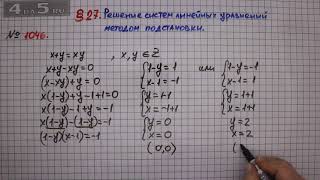 4APOK.RU
§27. Решение систем линейных уравнений методом подстановки.
№ 1046.
x+y=xy , x,y∈Z
x+y-xy=0
(x-xy)+y=0
x(1-y)+y-1+1=0
x(1-y)-1+y=-1
x(1-y)-(1-y)=-1
(1-y)(x-1)=-1
{1-y=1
x-1=-1
{y=1-1
x=-1+1
{y=0
x=0
(0,0)
или
{1-y=-1
x-1=1
{y=1+1
x=1+1
y=2
x=2
(